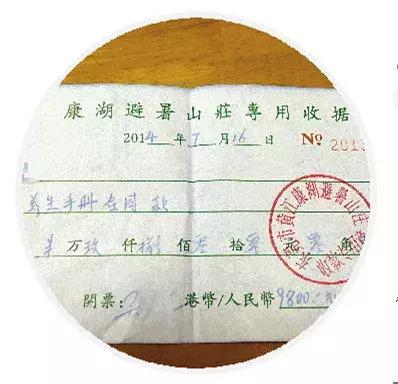 康湖避暑山莊專用收据
2014年7月16日 No 201
养生手册合同 款
万玖仟捌佰零拾零元零角
開票: 港幣/人民幣9800.-元
东莞市黄江康湖避暑山庄